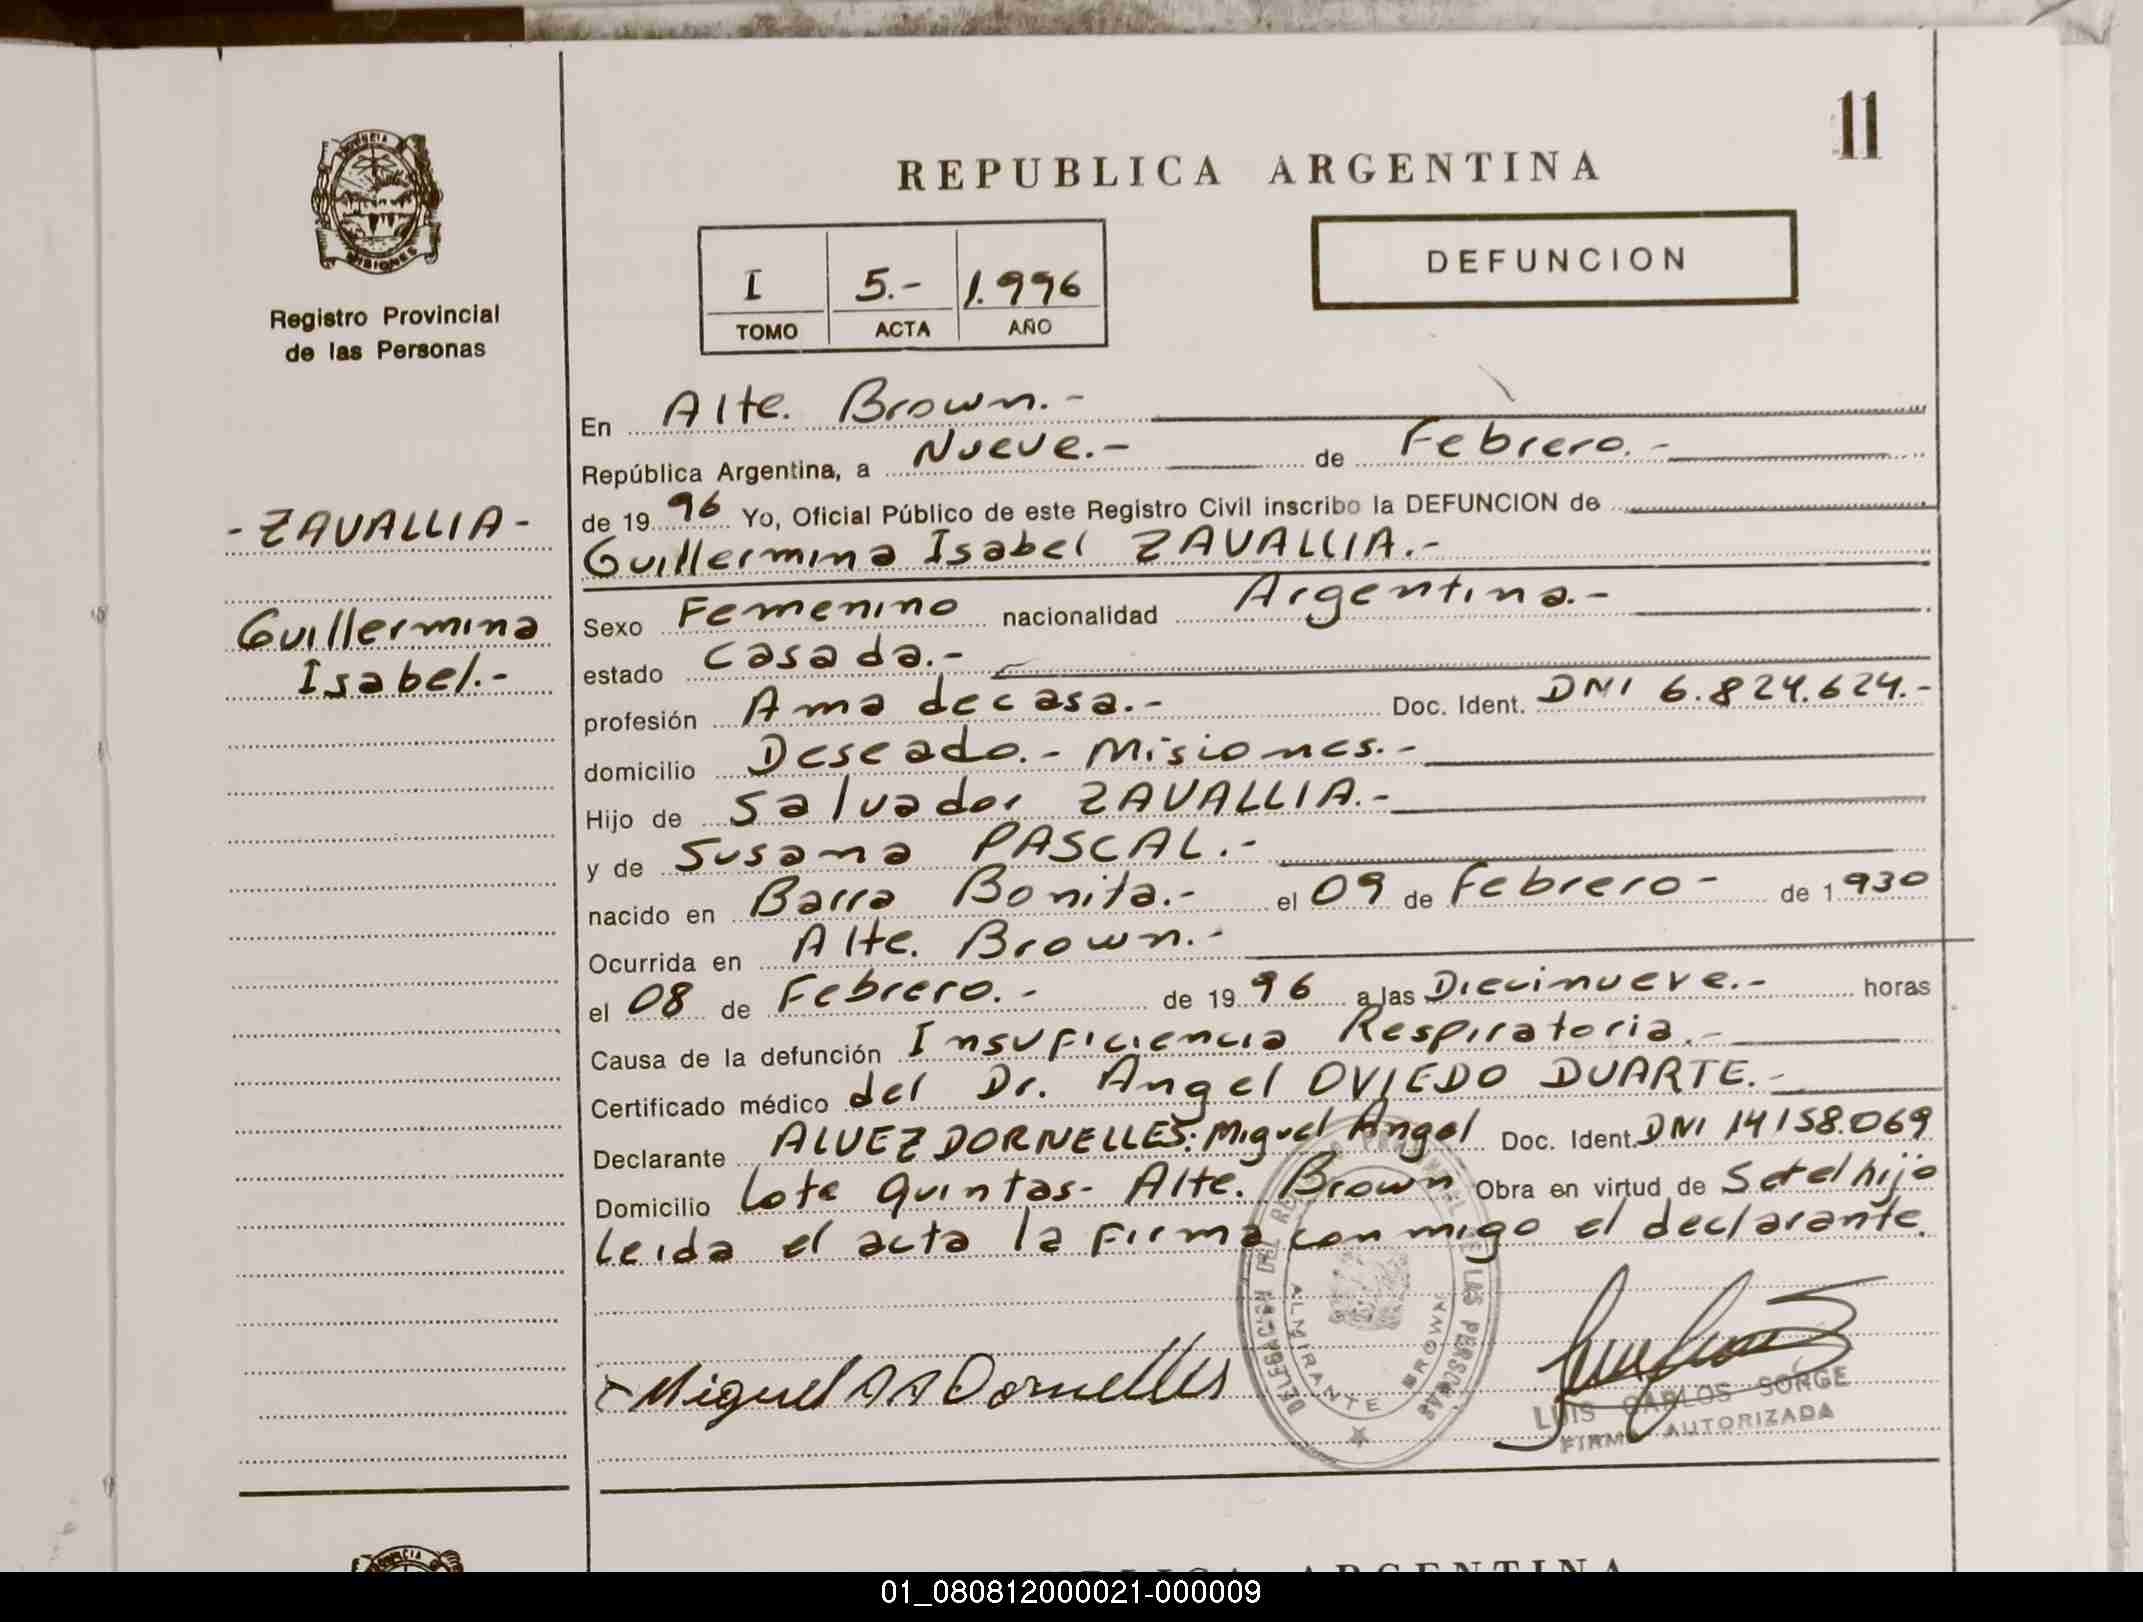 11
PROVINCIA
MISIONES
Registro Provincial
de las Personas
REPUBLICA ARGENTINA
I 5.- 1.996
TOMO ACTA AÑO
DEFUNCION
- ZAVALLIA -
Guillermina
Isabel.-
En Alte. Brown.-
República Argentina, a Nueve.- de Febrero.-
de 1996 Yo, Oficial Público de este Registro Civil inscribo la DEFUNCION de
Guillermina Isabel ZAVALLIA.-
Sexo Femenino nacionalidad Argentina.-
estado Casada.-
profesión Ama de casa.- Doc. Ident. DNI 6.824.624.-
domicilio Deseado.- Misiones.-
Hijo de Salvador ZAVALLIA.-
y de Susana PASCAL.-
nacido en Barra Bonita.- el 09 de Febrero- de 1930
Ocurrida en Alte. Brown.-
el 08 de Febrero.- de 1996 a las Diecinueve.- horas
Causa de la defunción Insuficiencia Respiratoria.-
Certificado médico del Dr. Angel OVIEDO DUARTE.-
Declarante ALVEZ DORNELLES: Miguel Angel Doc. Ident. DNI 14158.069
Domicilio Lote Quintas- Alte. Brown Obra en virtud de Ser el hijo
Leida el acta la firma conmigo el declarante.
DELEGACION DEL REG PROVINCIAL DE LAS PERSONAS
ALMIRANTE BROWN
Miguel A A Dornelles
LUIS CARLOS SORGE
FIRMA AUTORIZADA
REPUBLICA ARGENTINA
01_080812000021-000009